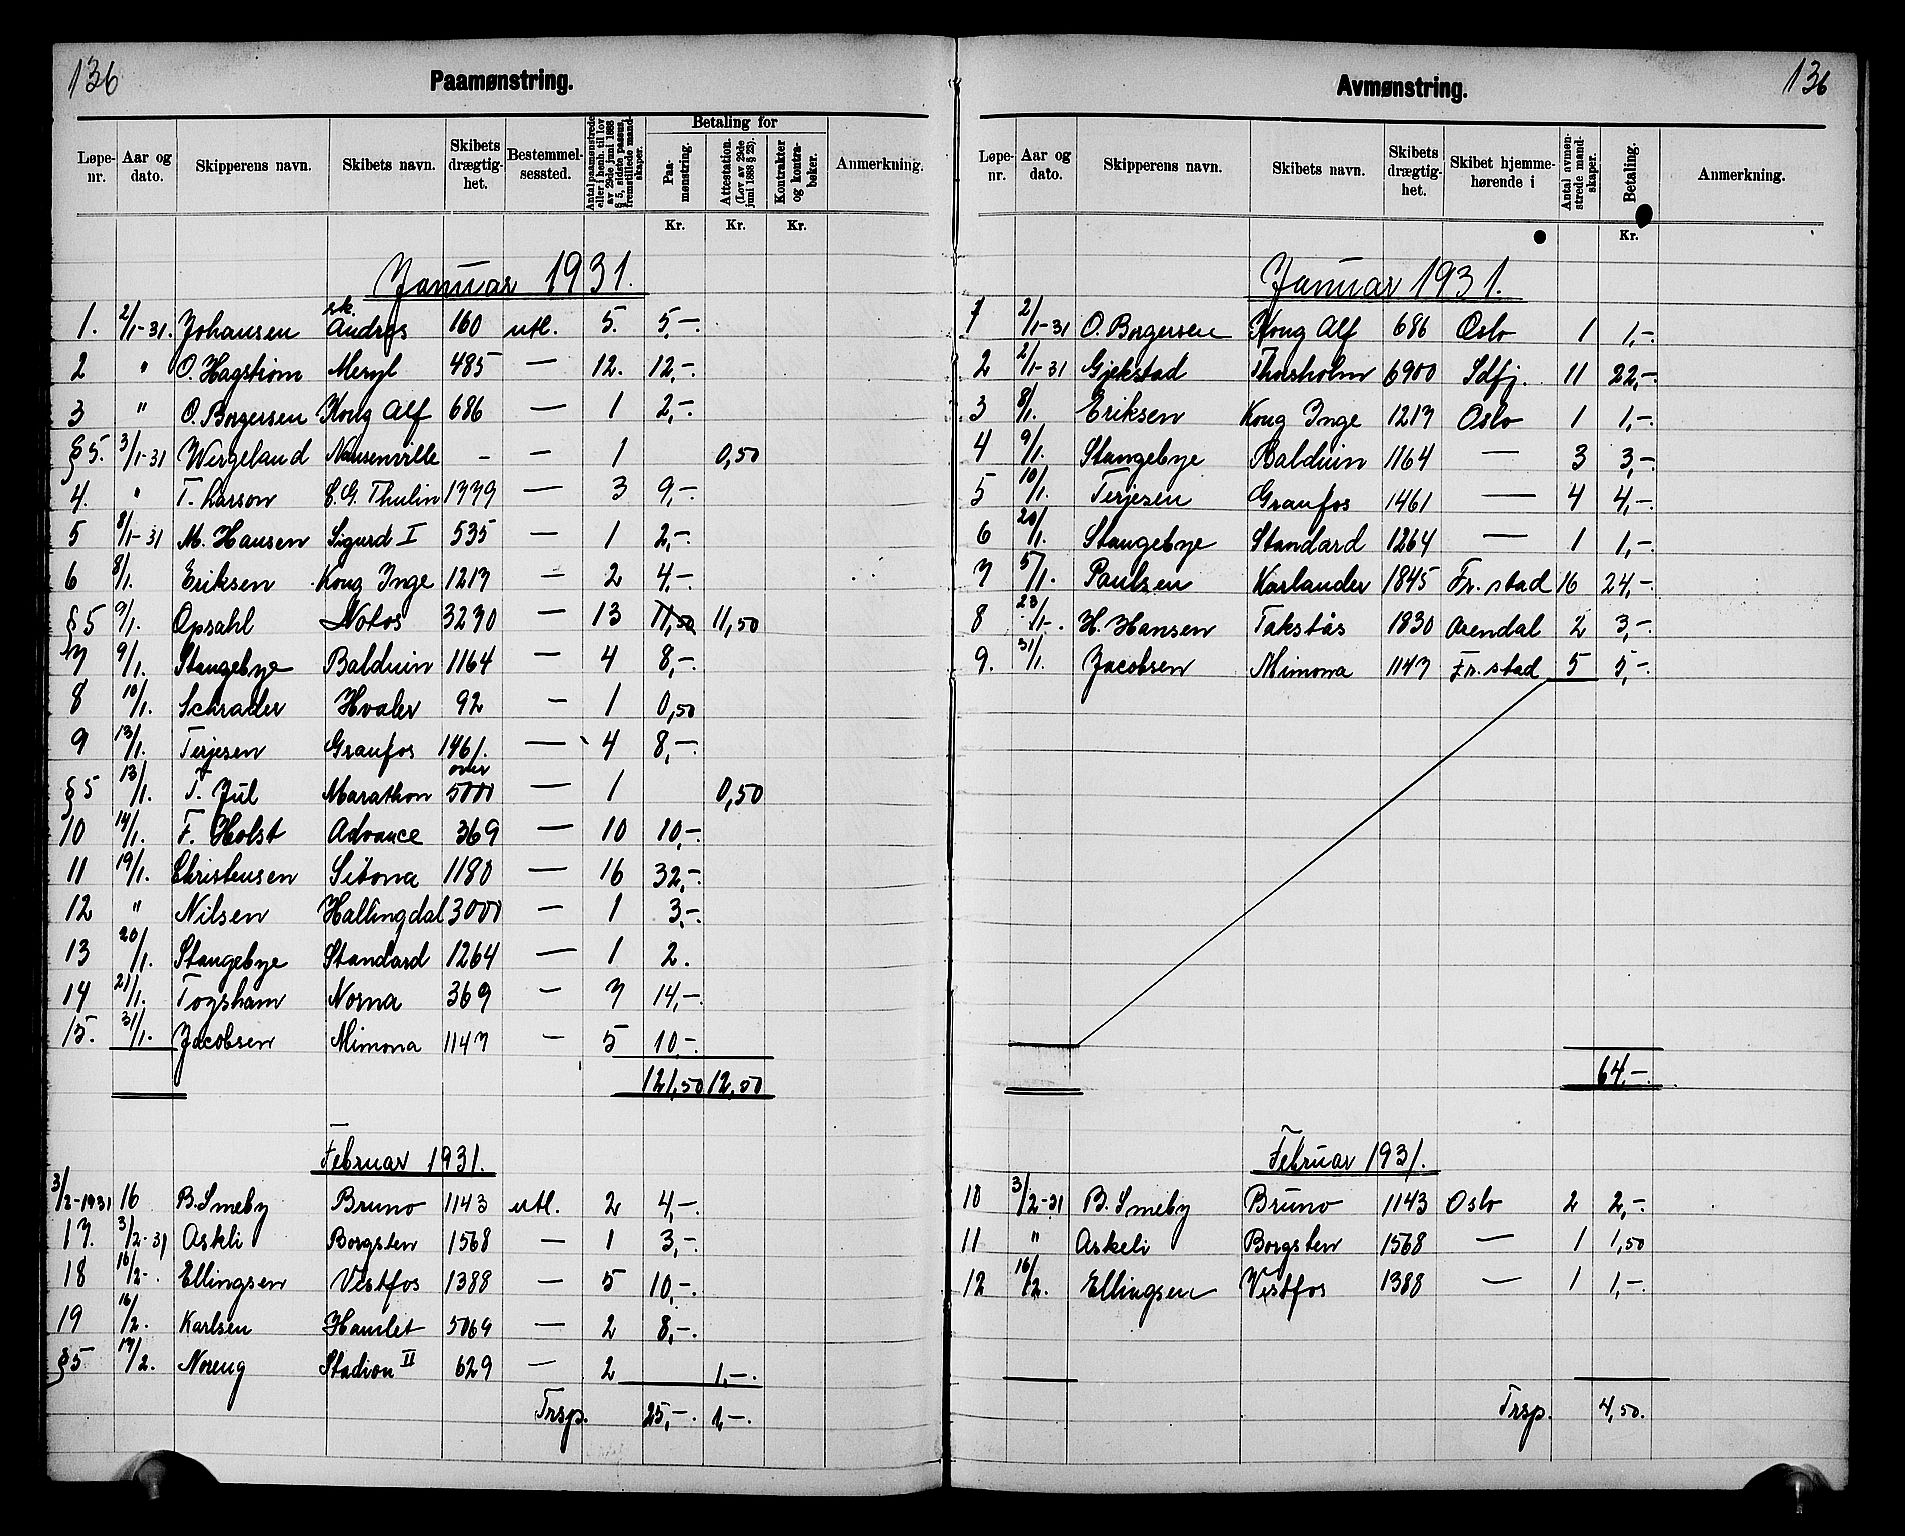 136
Paamønstring.
Løpe-nr. Aar og dato. Skipperens navn. Skibets navn. Skibets drægtig-het. Bestemmel-sessted. Antal paamønstrede eller i henh. til lov av 29de juni 1888 § 5, sidste passus, fremstillede mand-skaper. Betaling for Paa-mønstring. Attestation. (Lov av 29de juni 1888 § 23). Kontrakter og kontra-bøker. Anmerkning.
Kr. Kr. Kr.
Januar 1931.
1. 2/1-31. Johansen sk. Andros 160 utl. 5. 5,-.
2 " O. Hagstrøm Meryl 485 — 12. 12,-.
3 " O. Borgersen Kong Alf 686 — 1 2,-.
§ 5. 3/1-31 Wergeland Nansenville - — 1 0,50
4. " T. Larson C. G. Thulin 1779 — 3 9,-.
5 8/1-31 M. Hansen Sigurd I 535 — 1 2,-.
6 8/1. Eriksen Kong Inge 1217 — 2 4,-.
§ 5 9/1. Opsahl Notos 3270 — 13 11,50 11,50
7 9/1. Stangebye Balduin 1164 — 4 8,-.
8 10/1. Schrader Hvaler 92 — 1 0,50
9 13/1. Terjesen Granfos 1461. — 4 8,-.
§ 5 13/1. T. Jul Marathon over 5000 — 1 0,50
10 14/1. F. Holst Advance 369 — 10 10,-.
11 19/1. Christensen Sitona 1180 — 16 32,-.
12 " Nilsen Hallingdal 3000 — 1 3,-.
13 20/1. Stangebye Standard 1264 — 1 2.
14 21/1. Togsham Norna 369 — 7 14,-.
15. 31/1. Jacobsen Mimona 1147 — 5 10,-.
121,50 12,50
Februar 1931.
3/2-1931 16 B. Smeby Bruno 1143 utl. 2 4,-.
17. 3/2-31 Askli Borgsten 1568 — 1 3,-.
18 16/2-. Ellingsen Vestfos 1388 — 5 10,-.
19 16/2. Karlsen Hamlet 5069 — 2 8,-.
§ 5 17/2. Noreng Stadion II 629 — 2 1,-.
Trsp. 25,-. 1,-.
136
Avmønstring.
Løpe-nr. Aar og dato. Skipperens navn. Skibets navn. Skibets drægtig-het. Skibet hjemme-hørende i Antal avmøn-strede mand-skaper. Betaling. Anmerkning.
Kr.
Januar 1931.
1 2/1-31 O. Borgersen Kong Alf 686 Oslo 1 1,-.
2 2/1-31 Gjekstad Thorsholm 6900 Sdfj. 11 22,-.
3 8/1. Eriksen Kong Inge 1217 Oslo 1 1,-.
4 9/1. Stangebye Balduin 1164 — 3 3,-.
5 10/1. Terjesen Granfos 1461 — 4 4,-.
6 20/1. Stangebye Standard 1264 — 1 1,-.
7 5/1. Paulsen Karlander 1845 Fr.stad 16 24,-.
8 23/1-. H. Hansen Takstås 1830 Arendal 2 3,-.
9. 31/1. Jacobsen Mimona 1147 Fr.stad 5 5,-.
64,-.
Februar 1931.
10 3/2-31 B. Smeby Bruno 1143 Oslo 2 2,-.
11 " Askeli Borgsten 1568 — 1 1,50
12 16/2. Ellingsen Vestfos 1388 — 1 1,-.
Trsp. 4,50.